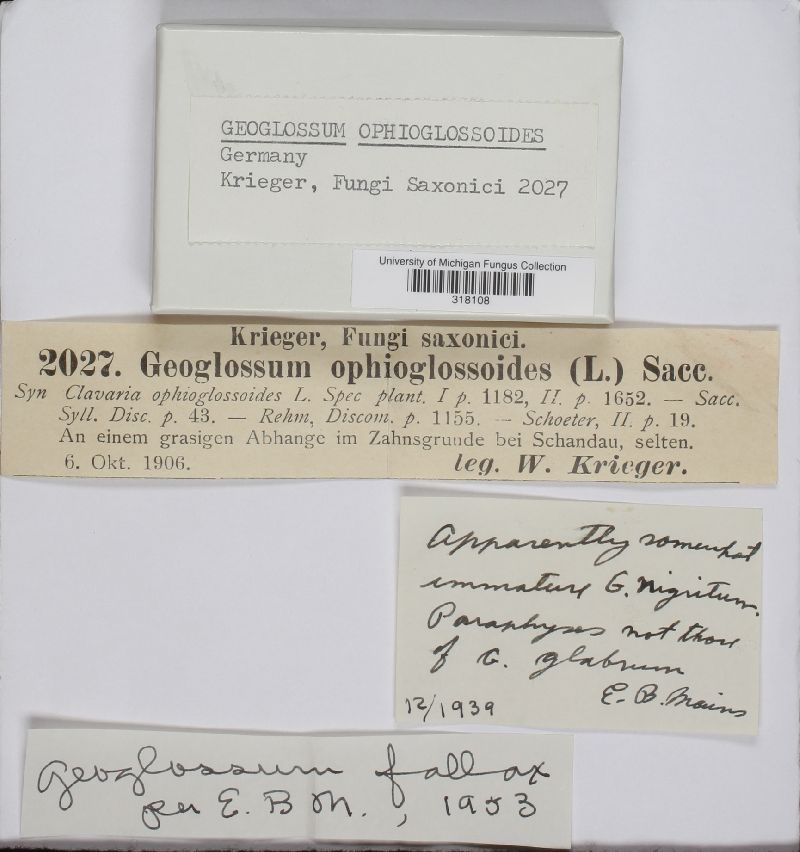 GEOGLOSSUM OPHIOGLOSSOIDES
Germany
Krieger, Fungi Saxonici 2027
University of Michigan Fungus Collection
318108
Krieger, Fungi saxonici.
2027. Geoglossum ophioglossoides (L.) Sacc.
Syn Clavaria ophioglossoides L. Spec plant. I p. 1182, II. p. 1652. — Sacc.
Syll. Disc. p. 43. — Rehm, Discom. p. 1155. — Schoeter, II. p. 19.
An einem grasigen Abhange im Zahnsgrunde bei Schandau, selten.
6. Okt. 1906.
leg. W. Krieger.
Apparently somewhat
immature G. nigritum.
Paraphyses not those
of G. glabrum
E. B. Mains
12/1939
Geoglossum fallax
per E. B M., 1953